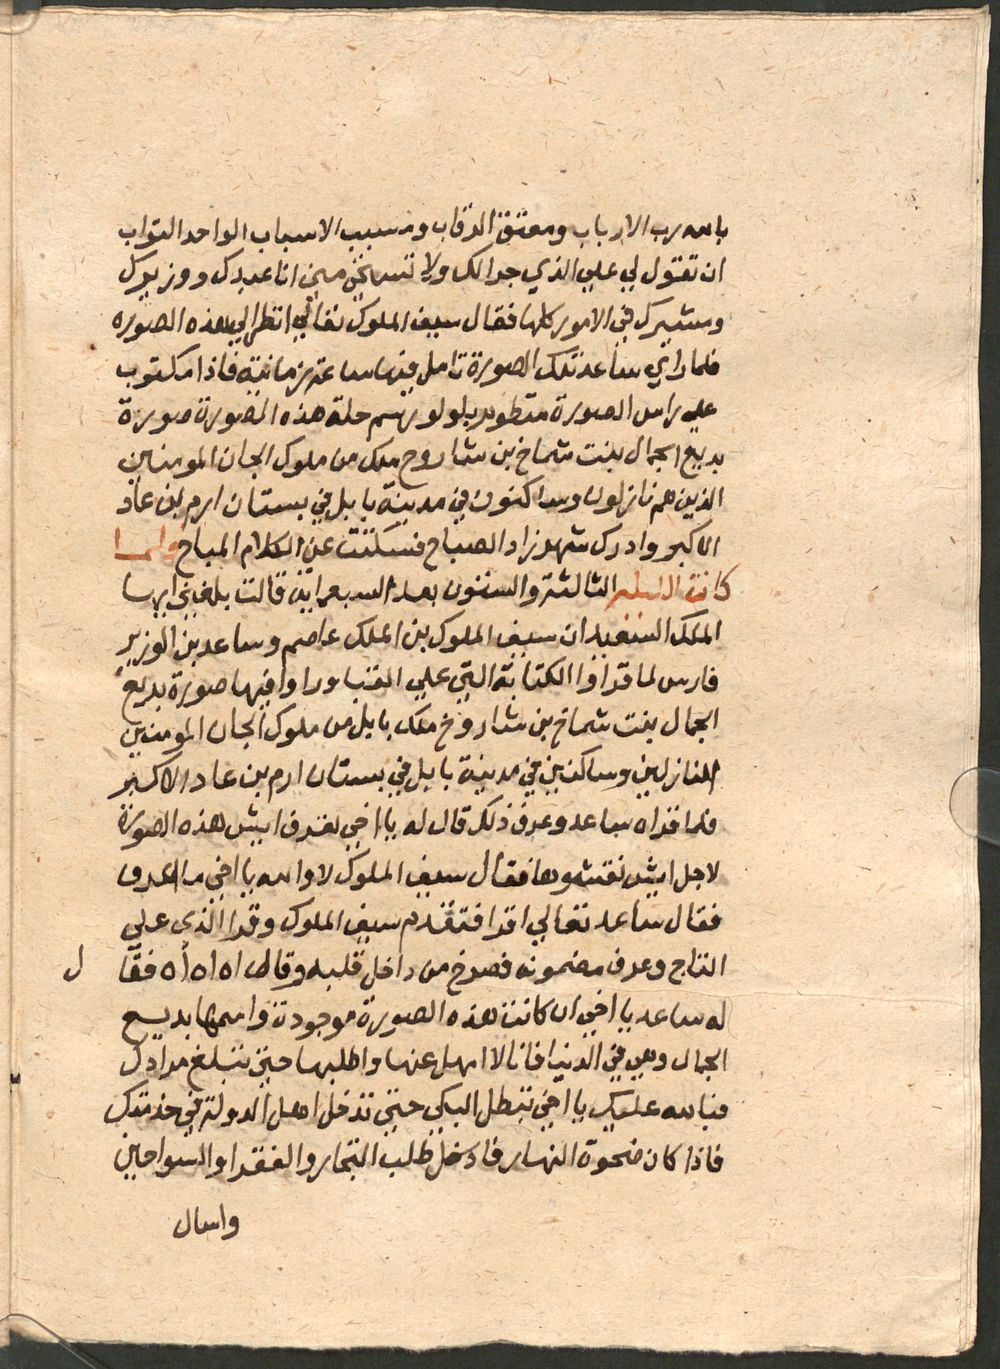 بالله رب الارباب ومعتق الرقاب ومسبب الاسباب الواحد التواب
ان تقول لي علي الذي جرالك ولا تستحي مني انا عبدك ووزيرك
ومشيرك في الامور كلها فقال سيف الملوك تعالي انظر الي هذه الصوره
فلما راي ساعد تلك الصورة تامل فيها ساعة زمانية فاذا مكتوب
علي راس الصورة منظوم بلولو رسم حلة هذه الصورة صورة
بديع الجمال بنت شماخ بن شاروح ملك من ملوك الجان المومنين
الذين هم نازلون وساكنون في مدينة بابل في بستان ارم بن عاد
الاكبر وادرك شهرزاد الصباح فسكتت عن الكلام المباح ولما
كانت الليلة الثالثة والستون بعد السبعماية قالت بلغني ايها
الملك السعيد ان سيف الملوك بن الملك عاصم وساعد بن الوزير
فارس لما قراوا الكتابة التي علي القبا وراوا فيها صورة بديع
الجمال بنت شماخ بن شاروخ ملك بابل من ملوك الجان المومنين
النازلين وساكنين في مدينة بابل في بستان ارم بن عاد الاكبر
فلما قراه ساعد وعرف ذلك قال له يا اخي تعرف ايش هذه الصورة
لاجل ايش نفتشوها فقال سيف الملوك لا والله يا اخي ما اعرف
فقال ساعد تعالي اقرا فتقدم سيف الملوك وقرا الذي علي
التاج وعرف مضمونه فصرخ من داخل قلبه وقال اه اه اه فقال
له ساعد يا اخي ان كانت هذه الصورة موجودة واسمها بديع
الجمال وهي في الدنيا فانا لا امهل عنها واطلبها حتي تبلغ مرادك
فبالله عليك يا اخي تبطل البكي حتي تدخل اهل الدولة في خدمتك
فاذا كان ضحوة النهار فادخل طلب التجار والفقرا والسواحين
واسال